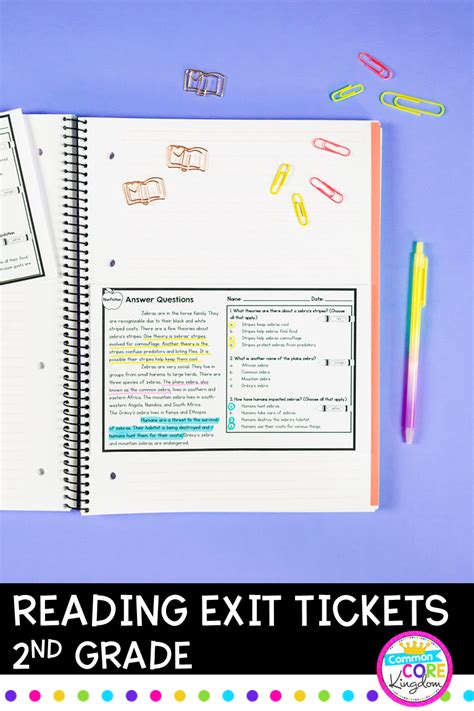 Nonfiction
Answer Questions
Zebras are in the horse family. They
are recognizable due to their black and white
striped coats. There are a few theories about
zebra's stripes. One theory is zebras' stripes
evolved for camouflage. Another theory is the
stripes confuse predators and biting flies. It is
possible their stripes help keep them cool.
Zebras are very social. They live in
groups from small harems to large herds. There are
three species of zebras. The plains zebra, also
known as the common zebra, lives in south-
western Africa. The mountain zebra lives in south-
western Angola, Namibia, and South Africa.
The Grévy's zebra lives in Kenya and Ethiopia.
Humans are a threat to the survival
of zebras. Their habitat is being destroyed and
humans hunt them for their coats. Grévy's zebra
and mountain zebras are endangered.
Name: Date:
1. What theories are there about a zebra's stripes? (Choose
all that apply.)
Stripes keep zebras cool.
Stripes help zebras find food.
Stripes help zebras camouflage.
Stripes protect zebras from predators.
2. What is another name of the plains zebra?
African zebra
Common zebra
Mountain zebra
Grévy's zebra
3. How have humans impacted zebras? (Choose all that
apply.)
Humans hunt zebras.
Humans take care of zebras.
Humans destroy the zebra's habitat.
Humans use their coats for various things.
READING EXIT TICKETS
2ND GRADE
Common
CORE
Kingdom